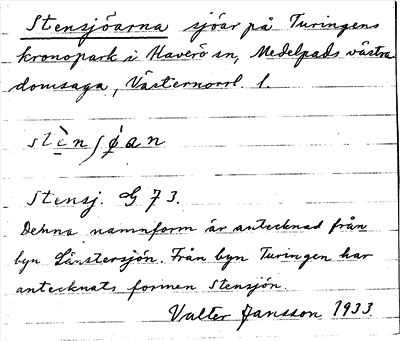 Stensjöarna sjöar på Turingens
kronopark i Haverö sn, Medelpads västra
domsaga, Västernorrl. l.
stè̱nʃøan
Stensj. G 73.
Denna namnform är antecknad från
byn Länstersjön. Från byn Turingen har
antecknats formen Stensjön.
Valter Jansson 1933